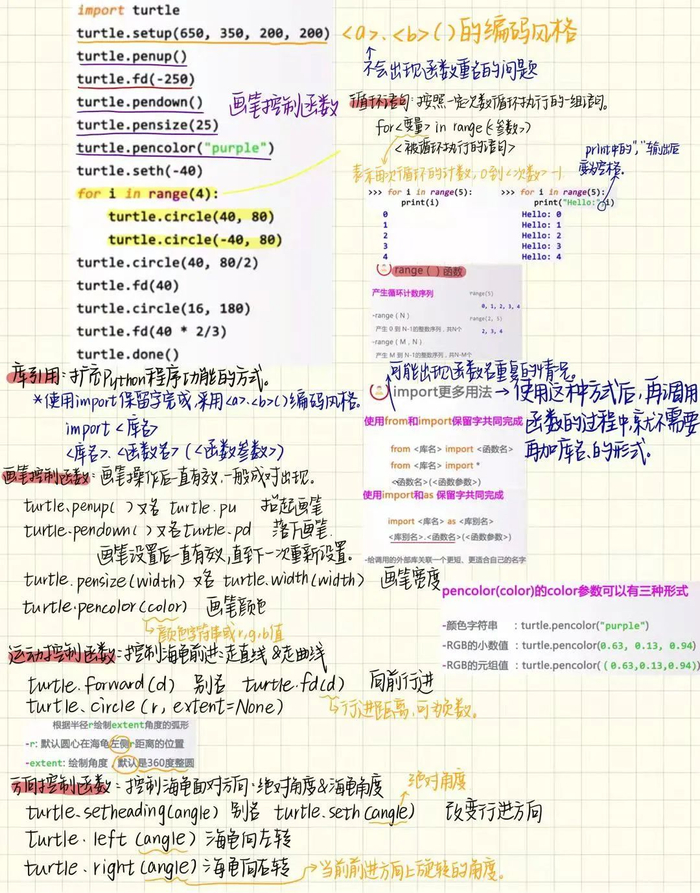 import turtle
turtle.setup(650, 350, 200, 200) <a>.<b>()的编码风格
turtle.penup() 不会出现函数重名的问题
turtle.fd(-250)
turtle.pendown() 画笔控制函数
turtle.pensize(25)
turtle.pencolor("purple")
turtle.seth(-40)
for i in range(4):
turtle.circle(40, 80)
turtle.circle(-40, 80)
turtle.circle(40, 80/2)
turtle.fd(40)
turtle.circle(16, 180)
turtle.fd(40 * 2/3)
turtle.done()
循环语句:按照一定次数循环执行的一组语句。
for<变量> in range(<参数>)
<被循环执行的语句>
print中的","输出后
变为空格.
表示每次循环的计数, 0到<次数>-1.
>>> for i in range(5):
print(i)
0
1
2
3
4
>>> for i in range(5):
print("Hello:",i)
Hello: 0
Hello: 1
Hello: 2
Hello: 3
Hello: 4
range ( ) 函数
产生循环计数序列
-range ( N )
产生 0 到 N-1的整数序列,共N个
-range ( M, N )
产生 M 到 N-1的整数序列,共N-M个
range(5)
0, 1, 2, 3, 4
range(2, 5)
2, 3, 4
库引用:扩充Python程序功能的方式。
*使用import保留字完成,采用<a>.<b>()编码风格.
import <库名>
<库名>.<函数名>(<函数参数>)
可能出现函数名重复的情况。
import更多用法→使用这种方式后,再调用
函数的过程中,就不需要
再加库名.的形式。
使用from和import保留字共同完成
from <库名> import <函数名>
from <库名> import *
<函数名>(<函数参数>)
使用import和as 保留字共同完成
import <库名> as <库别名>
<库别名>.<函数名>(<函数参数>)
-给调用的外部库关联一个更短、更适合自己的名字
画笔控制函数:画笔操作后一直有效,一般成对出现。
turtle.penup( )又名 turtle.pu 抬起画笔
turtle.pendown( )又名turtle.pd 落下画笔.
画笔设置后一直有效,直到下一次重新设置。
turtle.pensize(width)又名 turtle.width(width) 画笔宽度
turtle.pencolor(color) 画笔颜色
颜色字符串或r,g,b值
pencolor(color)的color参数可以有三种形式
-颜色字符串 :turtle.pencolor("purple")
-RGB的小数值 :turtle.pencolor(0.63, 0.13, 0.94)
-RGB的元组值 :turtle.pencolor((0.63,0.13,0.94))
运动控制函数:控制海龟前进:走直线&走曲线
turtle.forward(d) 别名 turtle.fd(d) 向前行进
turtle.circle(r, extent=None) 行进距离,可为负数。
根据半径r绘制extent角度的弧形
-r: 默认圆心在海龟左侧r距离的位置
-extent: 绘制角度,默认是360度整圆
方向控制函数:控制海龟面对方向:绝对角度&海龟角度
绝对角度
turtle.setheading(angle) 别名 turtle.seth(angle) 改变行进方向
turtle.left (angle) 海龟向左转
turtle.right(angle)海龟向右转→当前前进方向上旋转的角度。